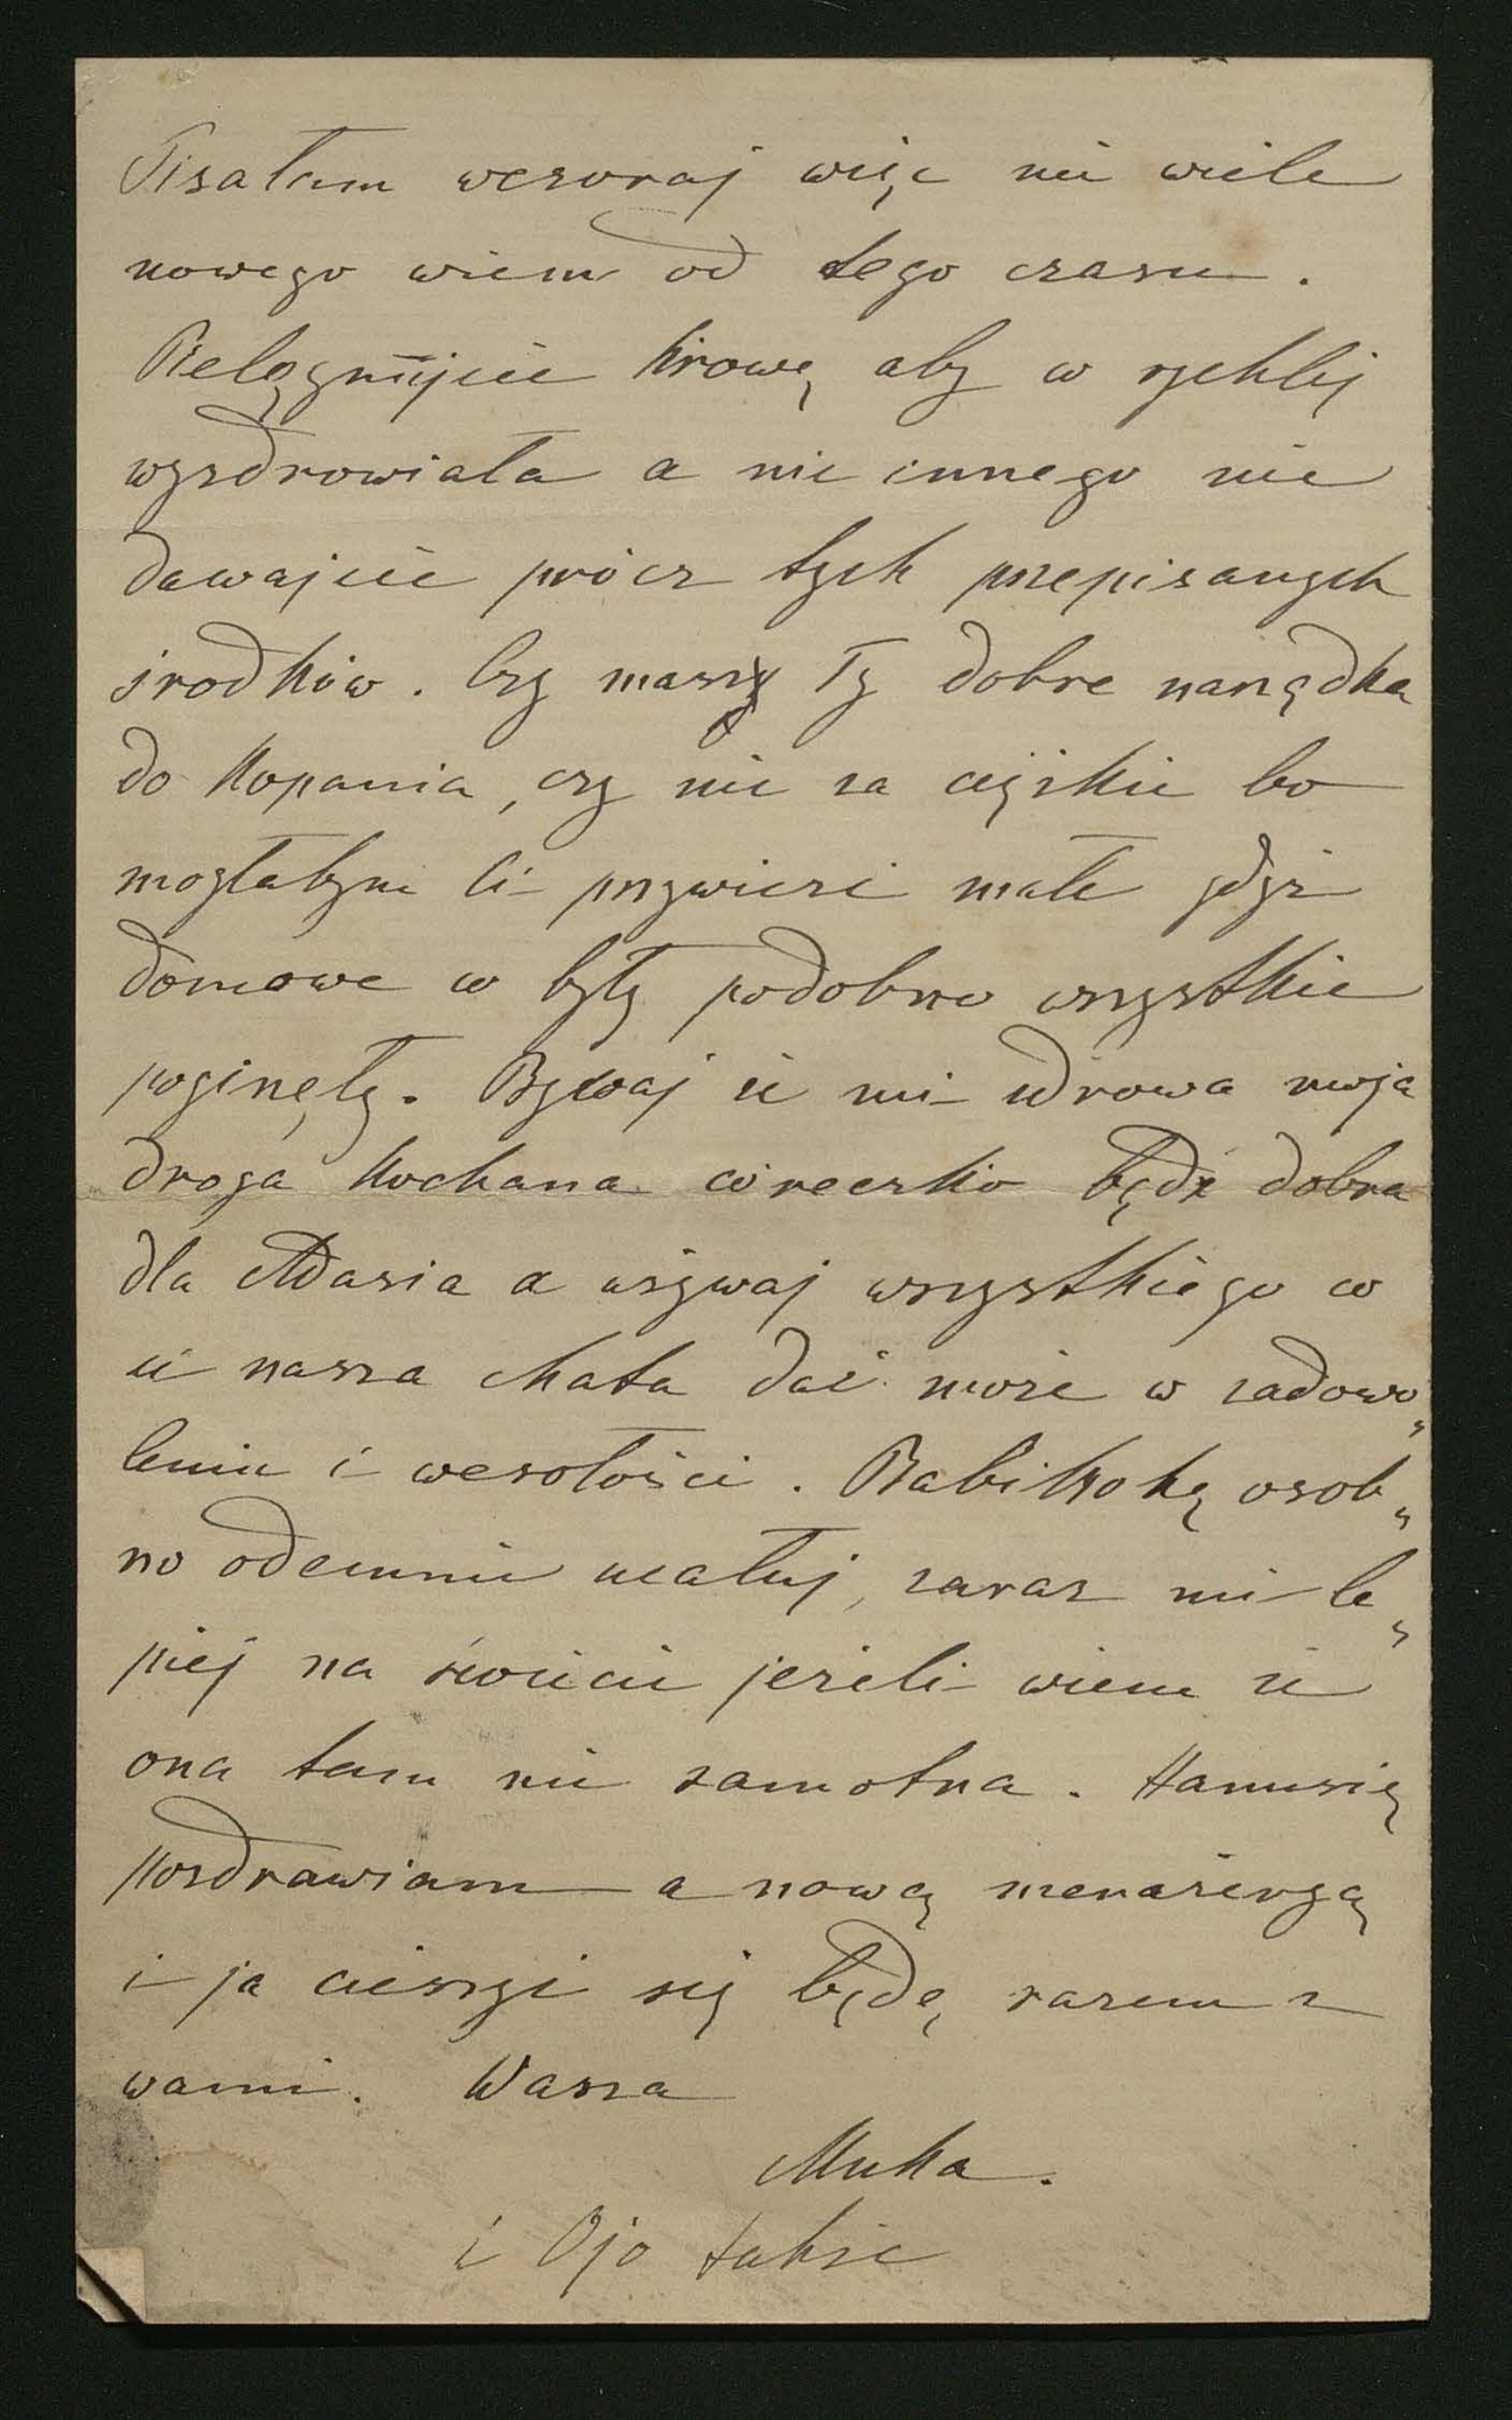 Pisałam wczoraj więc nie wiele
nowego wiem od tego czasu.
Pielęgnujcie krowę aby co rychlej
wyzdrowiała a nic innego nie
dawajcie prócz tych przepisanych
środków. Czy masz Ty dobre narzędka
do kopania, czy nie za ciężkie bo
mogłabym Ci przywieźć małe gdyż
domowe co były podobno wszystkie
poginęły. Bywaj że mi zdrowa moja
droga kochana córeczko bądź dobra
dla Adasia a używaj wszystkiego co
ci nasza chata dać może w zadowo„
leniu i wesołości. osob„
no odemnie ucałuj, zaraz mi le„
piej na świecie jeżeli wiem że
ona tam nie samotna. Hanusię
pozdrawiam a nową menażeryą
i ja cieszyć się będę razem z
wami. Wasza
Muka.
i Ojo także